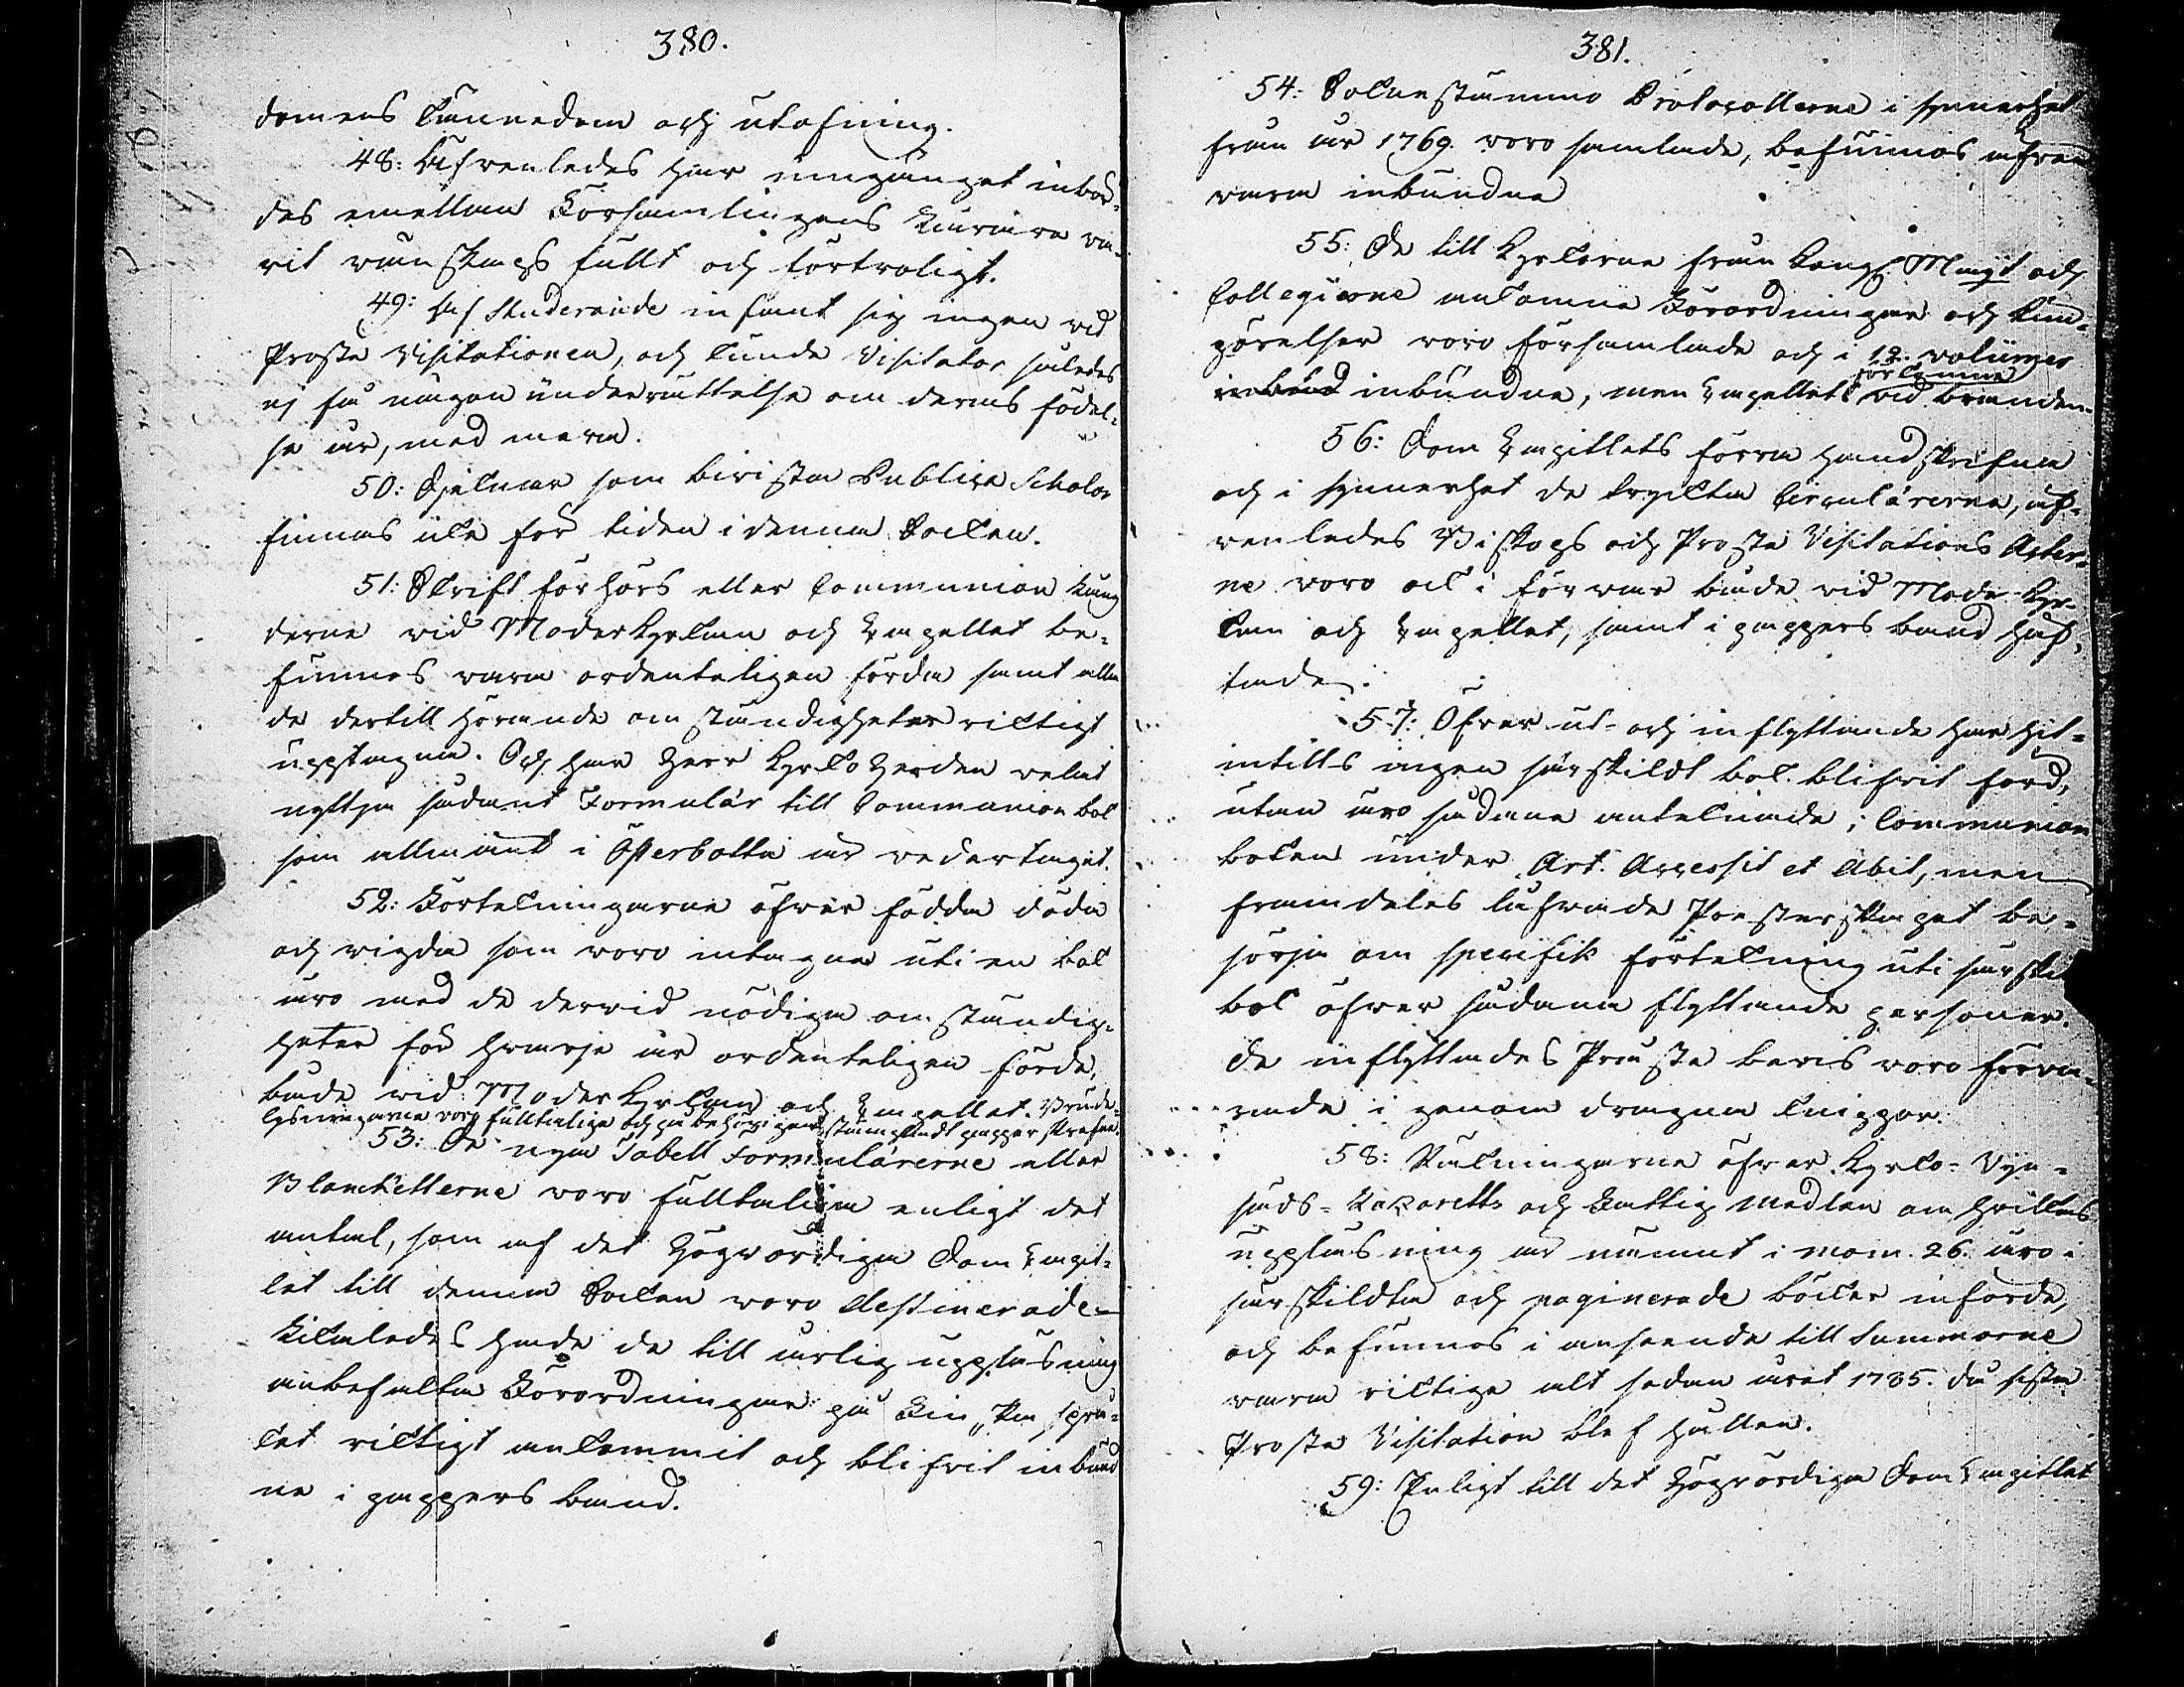 380.
domens kännedom och utöfning.
48: Äfwenledes har umgänget inbör-
des emellan Församlingens Lärare wa-
rit wänskaps fullt och förtroligt.
49: Af Studerande infant sig ingen wid
Proste Visitationen, och kunde Visitator således
ej få någon underrättelse om deras födel-
se år, med mera.
50: Djeknar som bivista Publique Scholor
finnas icke för tiden i denna Socken.
51: Skrift förhörs eller Communion Läng
derne wid Moderkyrkan och Capellet be-
funnos wara ordenteligen förda samt alla
de dertill hörande omständigheter riktigt
upptagna. Och har Herr Kyrkoherden velat
nyttja sådant Formulär till Communion bok
som allmänt i Österbotten är vedertaget.
52: Förtekningarne öfwer födda döda
och wigda som woro intagna uti en bok
äro med de derwid nödiga omständig-
heter för hwarje år ordenteligen förde,
både wid Moderkyrkan och Capellet.
lysningarna woro fulltaliga och på behörigen stämpladt papper skrefne.
53: De nya Tabell Formulärerne eller
Blanketterne woro fulltaliga enligt det
antal, som af det Högwördiga Dom Capit-
let till denna Socken woro destinerade
Likaledes hade de till årlig uppläsning
anbefallta Förordningar på Finska språ-
ket riktigt ankommit och blifwit inbund
ne i pappers band.
381.
54: Sockenstämmo Protocollerne i synnerhet
från år 1769. woro samlade, befunnos äfwen
wara inbundna
55: De till Kyrkorne från Kongl. Maijt och
Collegierne ankomna Förordningar och kun-
görelser woro församlade och i 12. volumer
förkomne
inbund inbundne, men Capellets wid branden.
56: Dom Capitlets förra handskrifna
och i synnerhet de tryckta Circulärerne, äf-
wenledes Biskops och Proste Visitations Acter-
ne woro ock i förwar både wid Moder Kyr-
kan och Capellet, samt i pappers band häf-
tade.
57: Öfwer ut- och inflyttande har hit-
intills ingen särskildt bok blifwit förd,
utan äro sådane antecknade i Communion
boken under Art. Accessit et Abiit, men
framdeles lofwade Presterskapet be-
sörja om specifik förtekning uti särskild
bok öfwer sådana flyttande personer.
De inflyttades Prestebewis woro förwa-
rade i genom dragna knippor.
58: Räkningarne öfwer Kyrko- Byg-
nads- Lazaretts och Fattig medlen om hwilkas
uppläsning är nämnt i mom. 26. äro i
särskildta och paginerade böcker införde,
och befunnos i anseende till Summorne
wara riktige alt sedan året 1785. då sista
Proste Visitation blef hållen.
59: Enligt till det Högwördiga Dom Capitlet